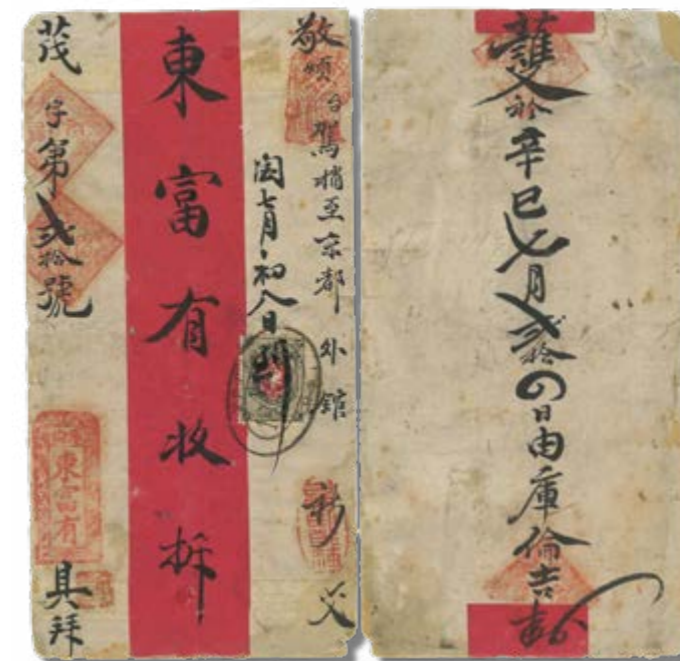 敬煩台駕捎至京都外館
閏七月初八日到
東富有收拆
茂字第貳拾號
東富有
具拜
護
辛巳七月貳拾四日由庫倫吉